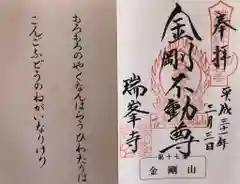 奉拝
平成三十一年
二月三日
金剛不動尊
瑞峯寺
第十七
金剛山
もろもろのやくなんはらうひわたりは
こんごふどうのねがいなりけり